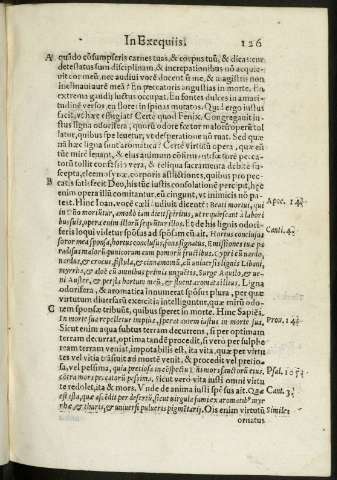 In Exequiis. 126
A quãdo cõsumpseris carnes tuas, & corpus tuũ, & dicas: cur
detestatus sum disciplinam, & increpationibus nõ acquie-
uit cor meũ, nec audiui vocẽ docentiũ me, & magistris non
inclinaui aurẽ meã? En peccatoris angustias in morte. En
extrema gaudij luctus occupat. En fontes dulces in amari-
tudinẽ versos, en flores in spinas mutatos. Quid ergo iustus
facit, vt hæc effugiat? Certe quod Fenix. Congregauit in-
stus ligna odorifera, quorũ odore fœtor malorũ operũ tol
latur, quibus spe leuetur, vt desperatione nõ ruat. Sed quæ
nã hæc ligna sunt aromatica? Certe virtutũ opera, quæ eũ
tũc mirè iuuant, & eius animum
catorũ tollit confessio vera, & eliqua sacramenta debitè su-
scepta, eleemosynæ, corporis afflictiones, quibus pro pec-
B catis satisfecit Deo, his tũc iustis consolationẽ percipit, hęc
enim opera illi comitantur, eũ cingunt, vt inimicis nõ pa-
teat. Hinc Ioan. vocẽ cœli audiuit dicentẽ: Beati mortui, qui Apoc. 14.
in Dño moriũtur, amodo iam dicit spiritus, vt requiescant à labori
bus suis, opera enim illorũ sequũtur illos. Et de his lignis odori-
feris loqui videtur spõsus ad spõsam cũ ait. Hortus conclusus Cant. 4.
soror mea sponsa, hortus conclusus, fons signatus. Emissiones tuæ pa
radisus malorũ punicorum cum pomorũ fructibus. Cypri cũ nardo,
nardus, & crocus, fistula, & cinnamomũ, cũ uniuersis lignis Libani,
myrrha, & aloë cũ omnibus primis unguẽtis. Surge Aquilo, & ue-
ni Auster, & perfla hortum meũ, & fluent aromata illius. Ligna
odorifera, & aromatica innumerat spõsus plura, per quæ
virtutum diuersarũ exercitia intelliguntur, quæ mirũ odo-
C rem sponsæ tribuũt, quibus speret in morte. Hinc Sapiẽs.
In morte sua repelletur impius, sperat enim iustus in morte sua. Prou. 14.
Sicut enim aqua subtus terram decurrens, si per optimam
terram decurrat, optima tandẽ procedit, si vero per sulphe
ream terram veniat, impotabilis est, ita vita, quæ per virtu
tes vel vitia trãsiuit ad mortẽ venit, & procedit vel pretio-
sa, vel pessima, quia pretiosa in cõspectu Dñi mors sanctorũ eius. Psal. 115.
cõtra mors peccatorũ pessima. Sicut verò vita iusti omni virtu
te redolet, ita & mors. Vnde de anima iusti spõ sus ait. Quæ Cant. 3.
est ista, quæ ascẽdit per desertũ, sicut uirgula fumi ex aromatib. myr
rhæ, & thuris, & uniuersi pulueris pigmẽtarij. Ois enim virtutũ Simile.
ornatus